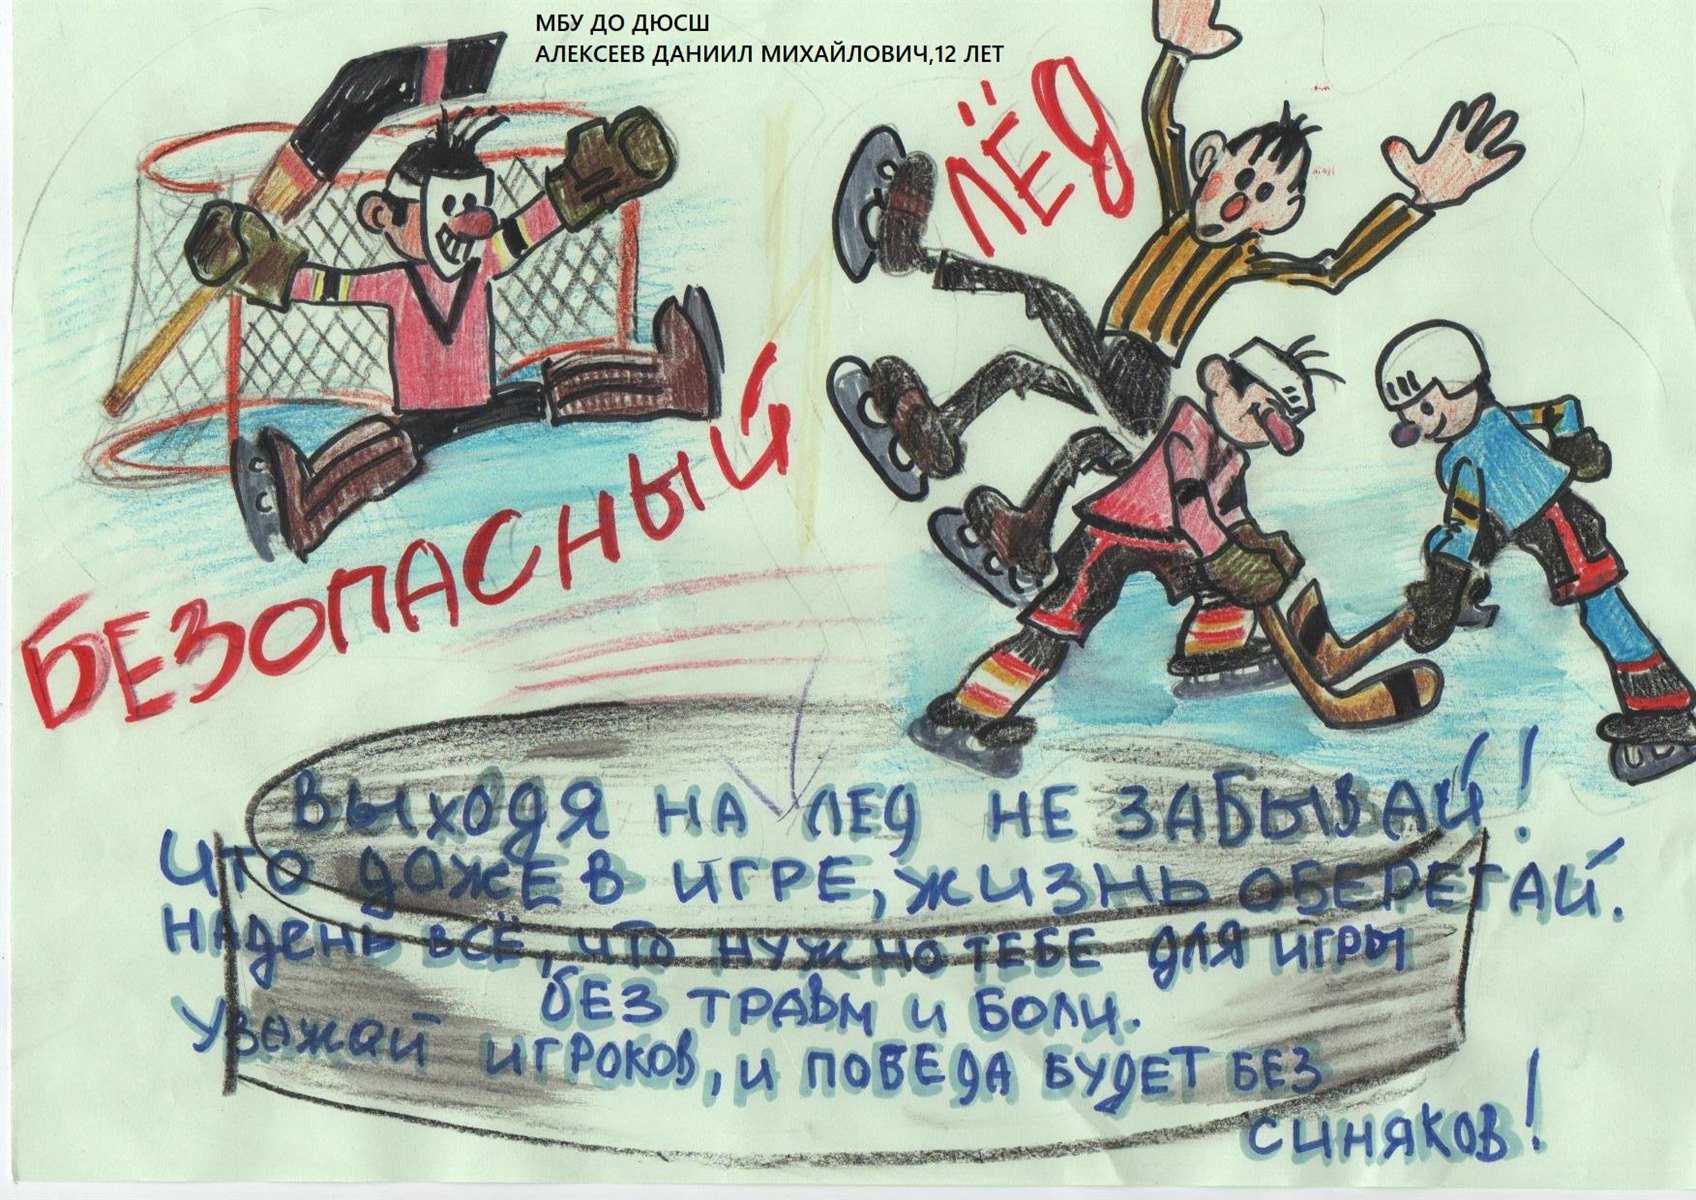 МБУ ДО ДЮСШ
АЛЕКСЕЕВ ДАНИИЛ МИХАЙЛОВИЧ,12 ЛЕТ
БЕЗОПАСНЫЙ
ЛЁД
ВЫХОДЯ НА ЛЕД НЕ ЗАБЫВАЙ!
ЧТО ДАЖЕ В ИГРЕ, ЖИЗНЬ ОБЕРЕГАЙ.
НАДЕНЬ ВСЁ, ЧТО НУЖНО ТЕБЕ ДЛЯ ИГРЫ
БЕЗ ТРАВМ И БОЛИ.
УВАЖАЙ ИГРОКОВ, И ПОБЕДА БУДЕТ БЕЗ
СИНЯКОВ!